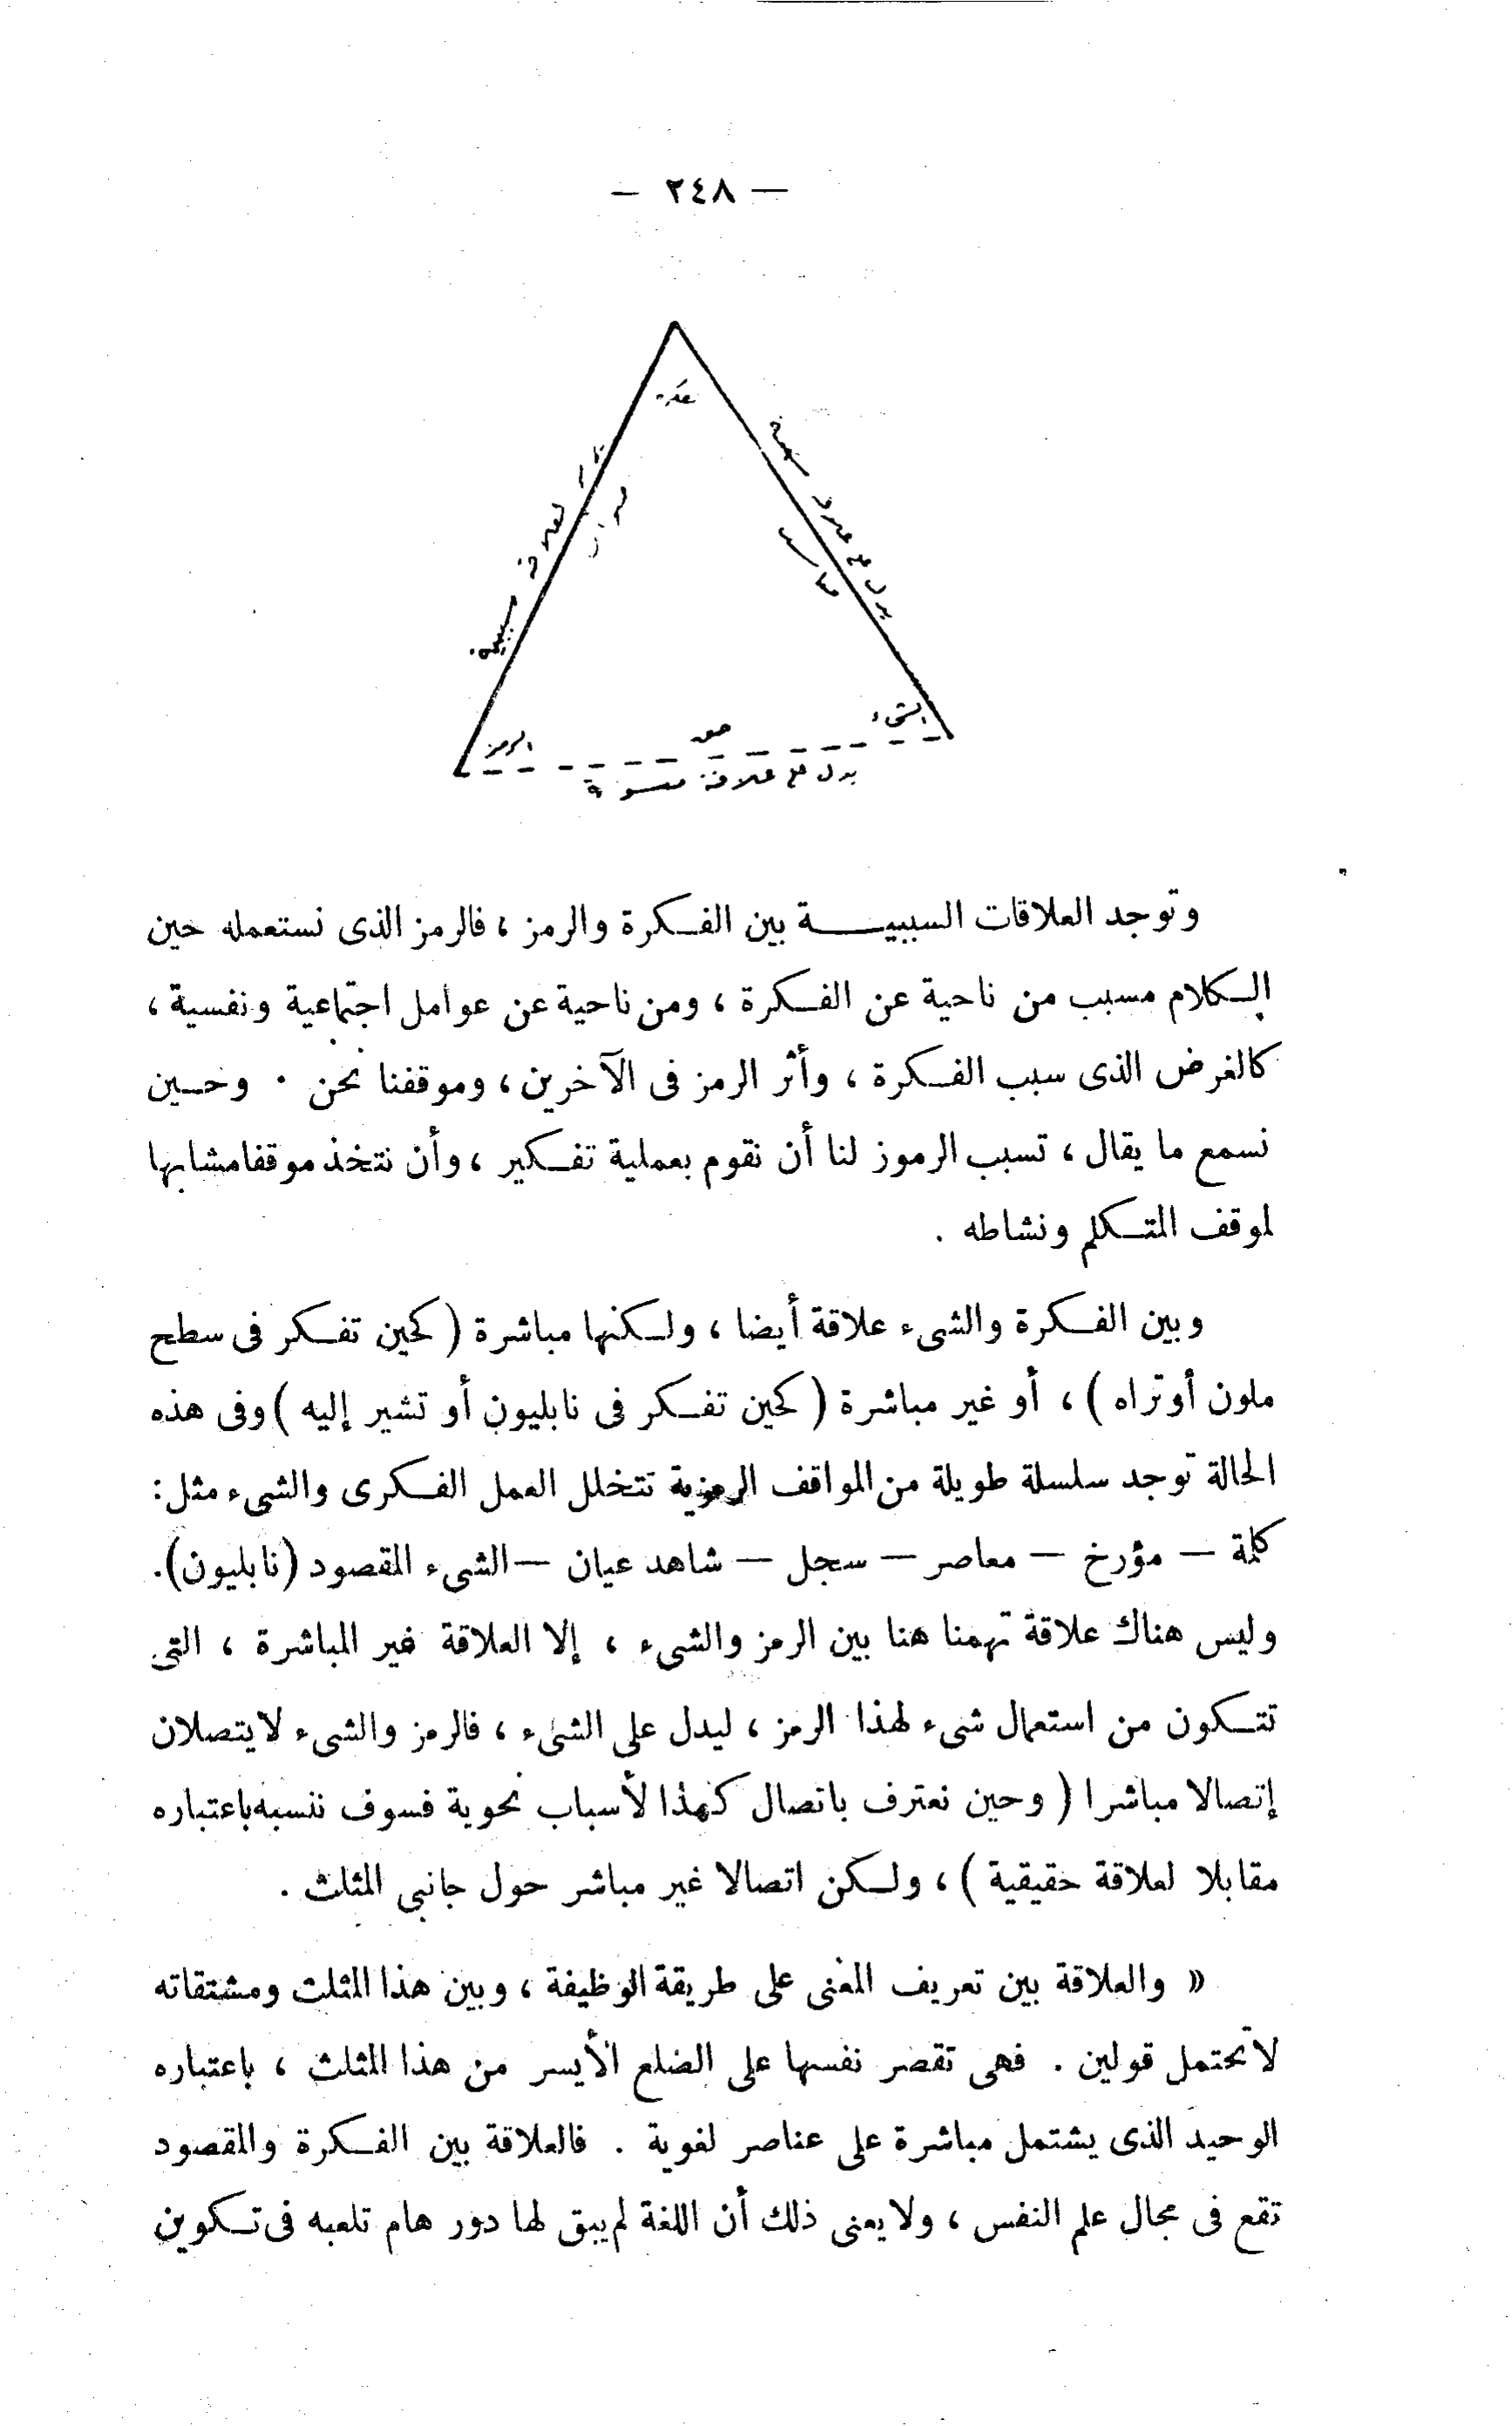 — ٢٤٨ —
لعلاقة سببية
الرمز
الشيء
يدل على علاقة
وتوجد العلاقات السببية بين الفكرة والرمز ، فالرمز الذى نستعمله حين
الكلام مسبب من ناحية عن الفكرة ، ومن ناحية عن عوامل اجتماعية ونفسية ،
كالغرض الذى سبب الفكرة ، وأثر الرمز فى الآخرين ، وموقفنا نحن . وحين
نسمع ما يقال ، تسبب الرموز لنا أن نقوم بعملية تفكير ، وأن نتخذ موقفا مشابها
لموقف المتكلم ونشاطه .
وبين الفكرة والشىء علاقة أيضا ، ولكنها مباشرة ( كحين تفكر فى سطح
ملون أو تراه ) ، أو غير مباشرة ( كحين تفكر فى نابليون أو تشير إليه ) وفى هذه
الحالة توجد سلسلة طويلة من المواقف الرمزية تتخلل العمل الفكرى والشىء مثل :
كلمة — مؤرخ — معاصر — سجل — شاهد عيان — الشىء المقصود (نابليون).
وليس هناك علاقة تهمنا هنا بين الرمز والشىء ، إلا العلاقة غير المباشرة ، التى
تتكون من استعمال شىء لهذا الرمز ، ليدل على الشىء ، فالرمز والشىء لا يتصلان
إتصالا مباشرا ( وحين نعترف باتصال كهذا لأسباب نحوية فسوف ننسبه باعتباره
مقابلا لعلاقة حقيقية ) ، ولكن اتصالا غير مباشر حول جانبى المثلث .
« والعلاقة بين تعريف المعنى على طريقة الوظيفة ، وبين هذا المثلث ومشتقاته
لا تحتمل قولين . فهى تقصر نفسها على الضلع الأيسر من هذا المثلث ، باعتباره
الوحيد الذى يشتمل مباشرة على عناصر لغوية . فالعلاقة بين الفكرة والمقصود
تقع فى مجال علم النفس ، ولا يعنى ذلك أن اللغة لم يبق لها دور هام تلعبه فى تكوين